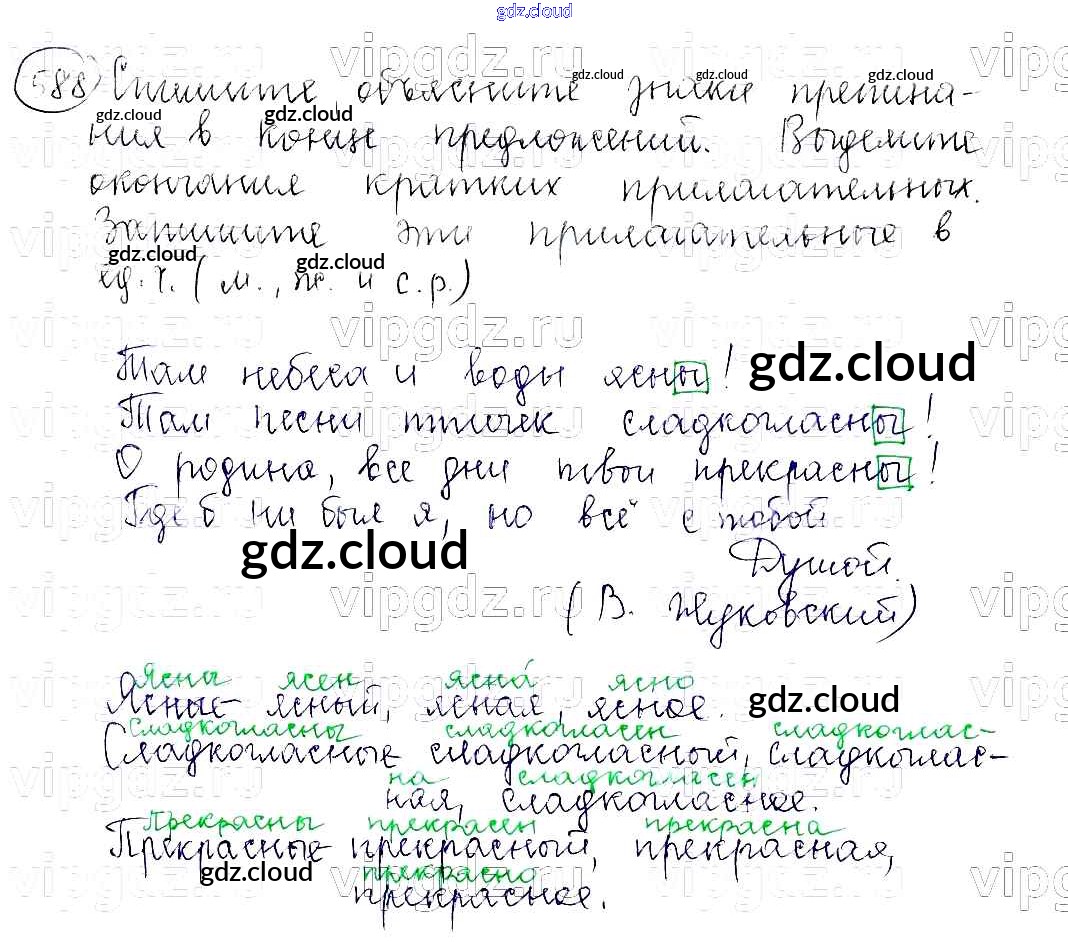 gdz.cloud
588 Спишите объясните знаки препина-
ния в конце предложений. Выделите
окончания кратких прилагательных.
Запишите эти прилагательные в
ед. ч. (м., ж. и с.р.)
Там небеса и воды ясны!
Там песни птичек сладкогласны!
О родина, все дни твои прекрасны!
Где б ни был я, но всё с тобой
Душой.
(В. Жуковский)
Ясны ясен ясна́ ясно
Ясные – ясный, ясная, ясное.
Сладкогласны сладкогласен сладкоглас-
Сладкогласные сладкогласный, сладкоглас-
на сладкогласен
ная, сладкогласное.
Прекрасны прекрасен прекрасна
Прекрасные – прекрасный, прекрасная,
прекрасно
прекрасное.
gdz.cloud
vipgdz.ru